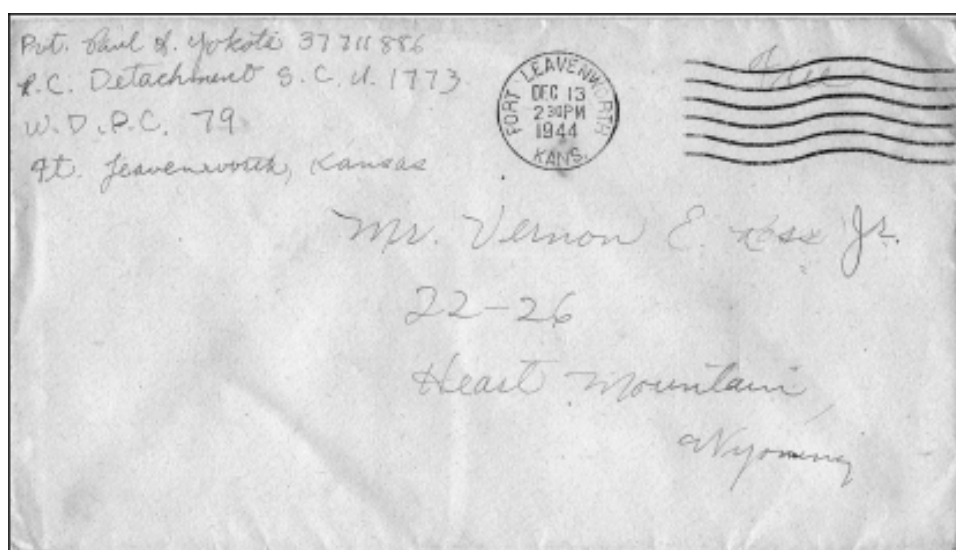 Pvt. Paul S. Yokota 37711886
R.C. Detachment S.C.U. 1773
W.D.P.C. 79
Ft. Leavenworth, Kansas
FORT LEAVENWORTH
DEC 13
2 30 PM
1944
KANS.
Free
Mr. Vernon E. Jr.
22-26
Heart Mountain,
Wyoming